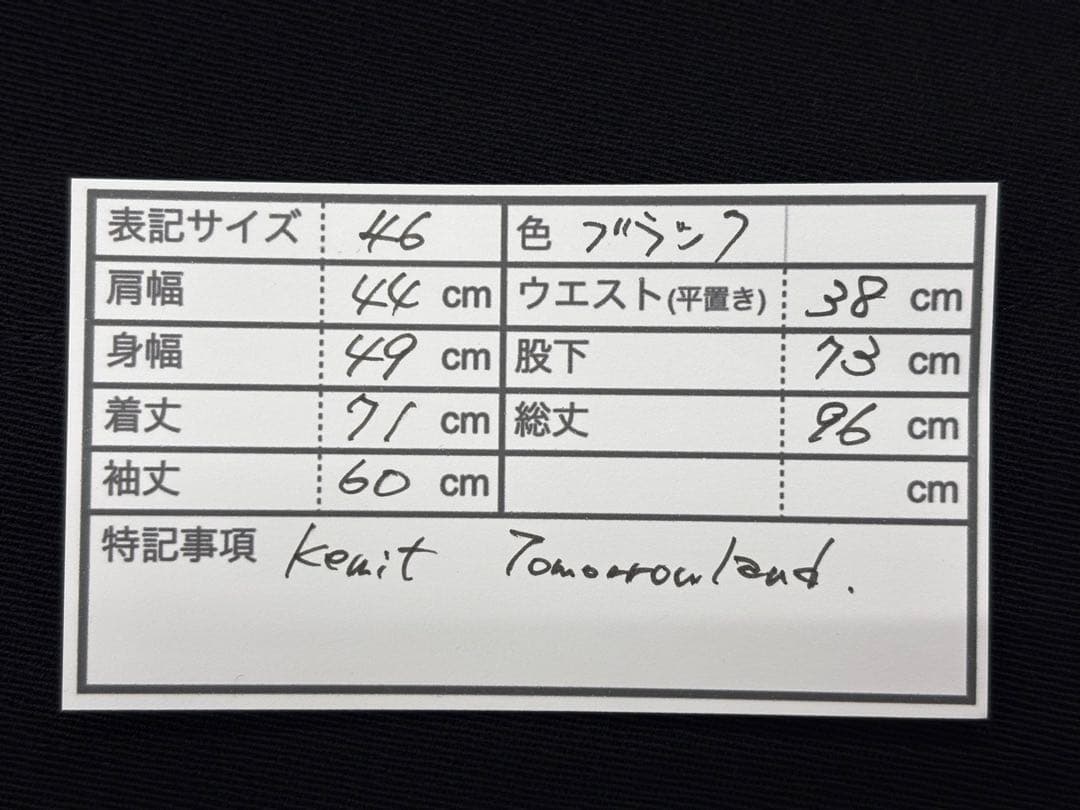 表記サイズ 46 色 ブラック
肩幅 44 cm ウエスト(平置き) 38 cm
身幅 49 cm 股下 73 cm
着丈 71 cm 総丈 96 cm
袖丈 60 cm cm
特記事項 Tomorrowland.